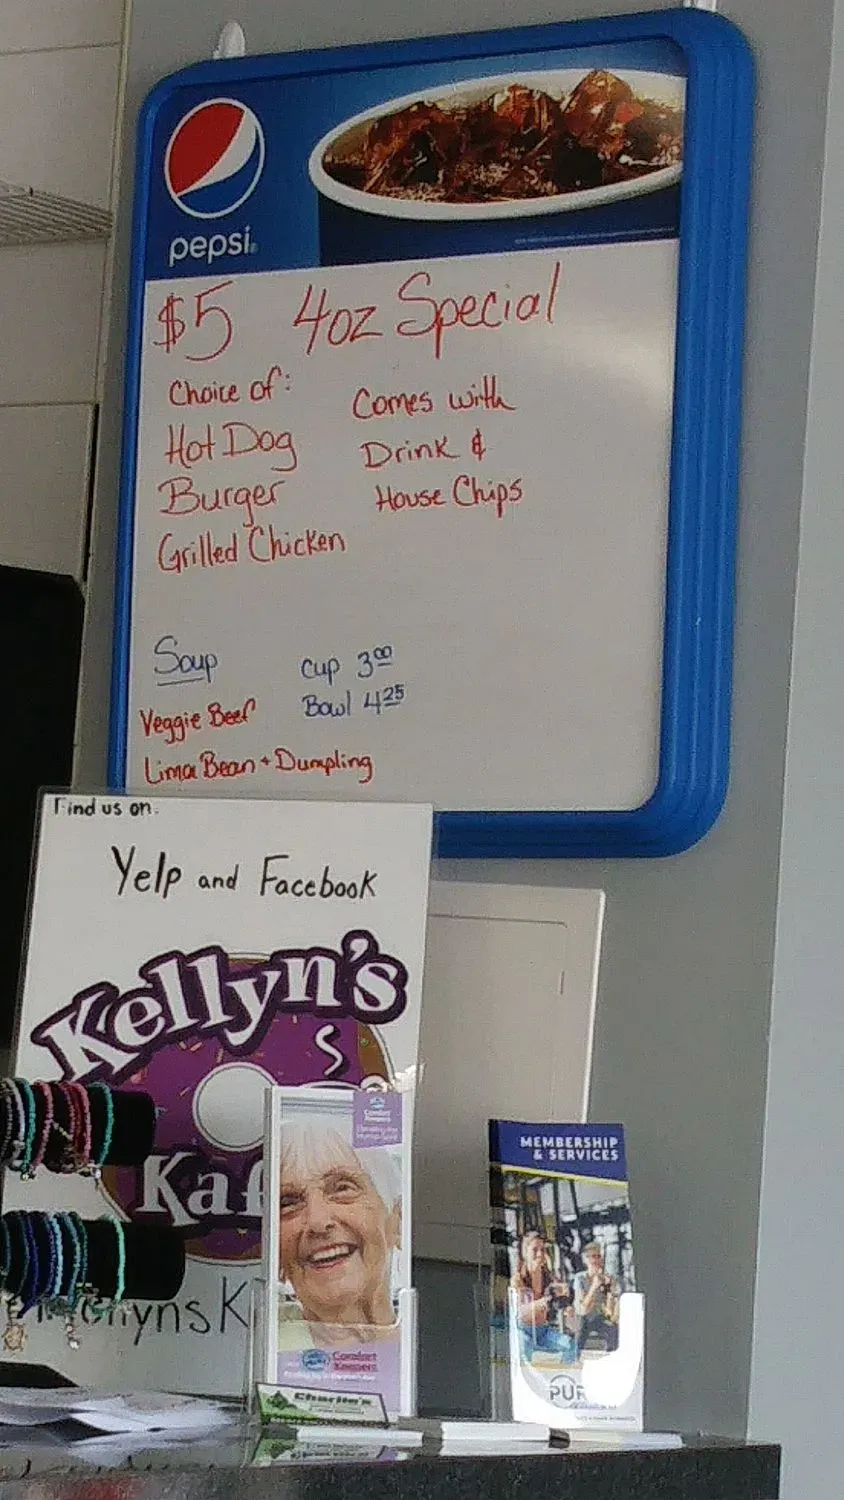 pepsi
$5 4oz Special
Choice of:
Hot Dog
Burger
Grilled Chicken
Comes with
Drink &
House Chips
Soup
Cup 3.00
Bowl 4.25
Veggie Beef
Lima Bean + Dumpling
Find us on:
Yelp and Facebook
Kellyn's
Comfort
Keepers
Comfort
Keepers
Charlie's
MEMBERSHIP
& SERVICES